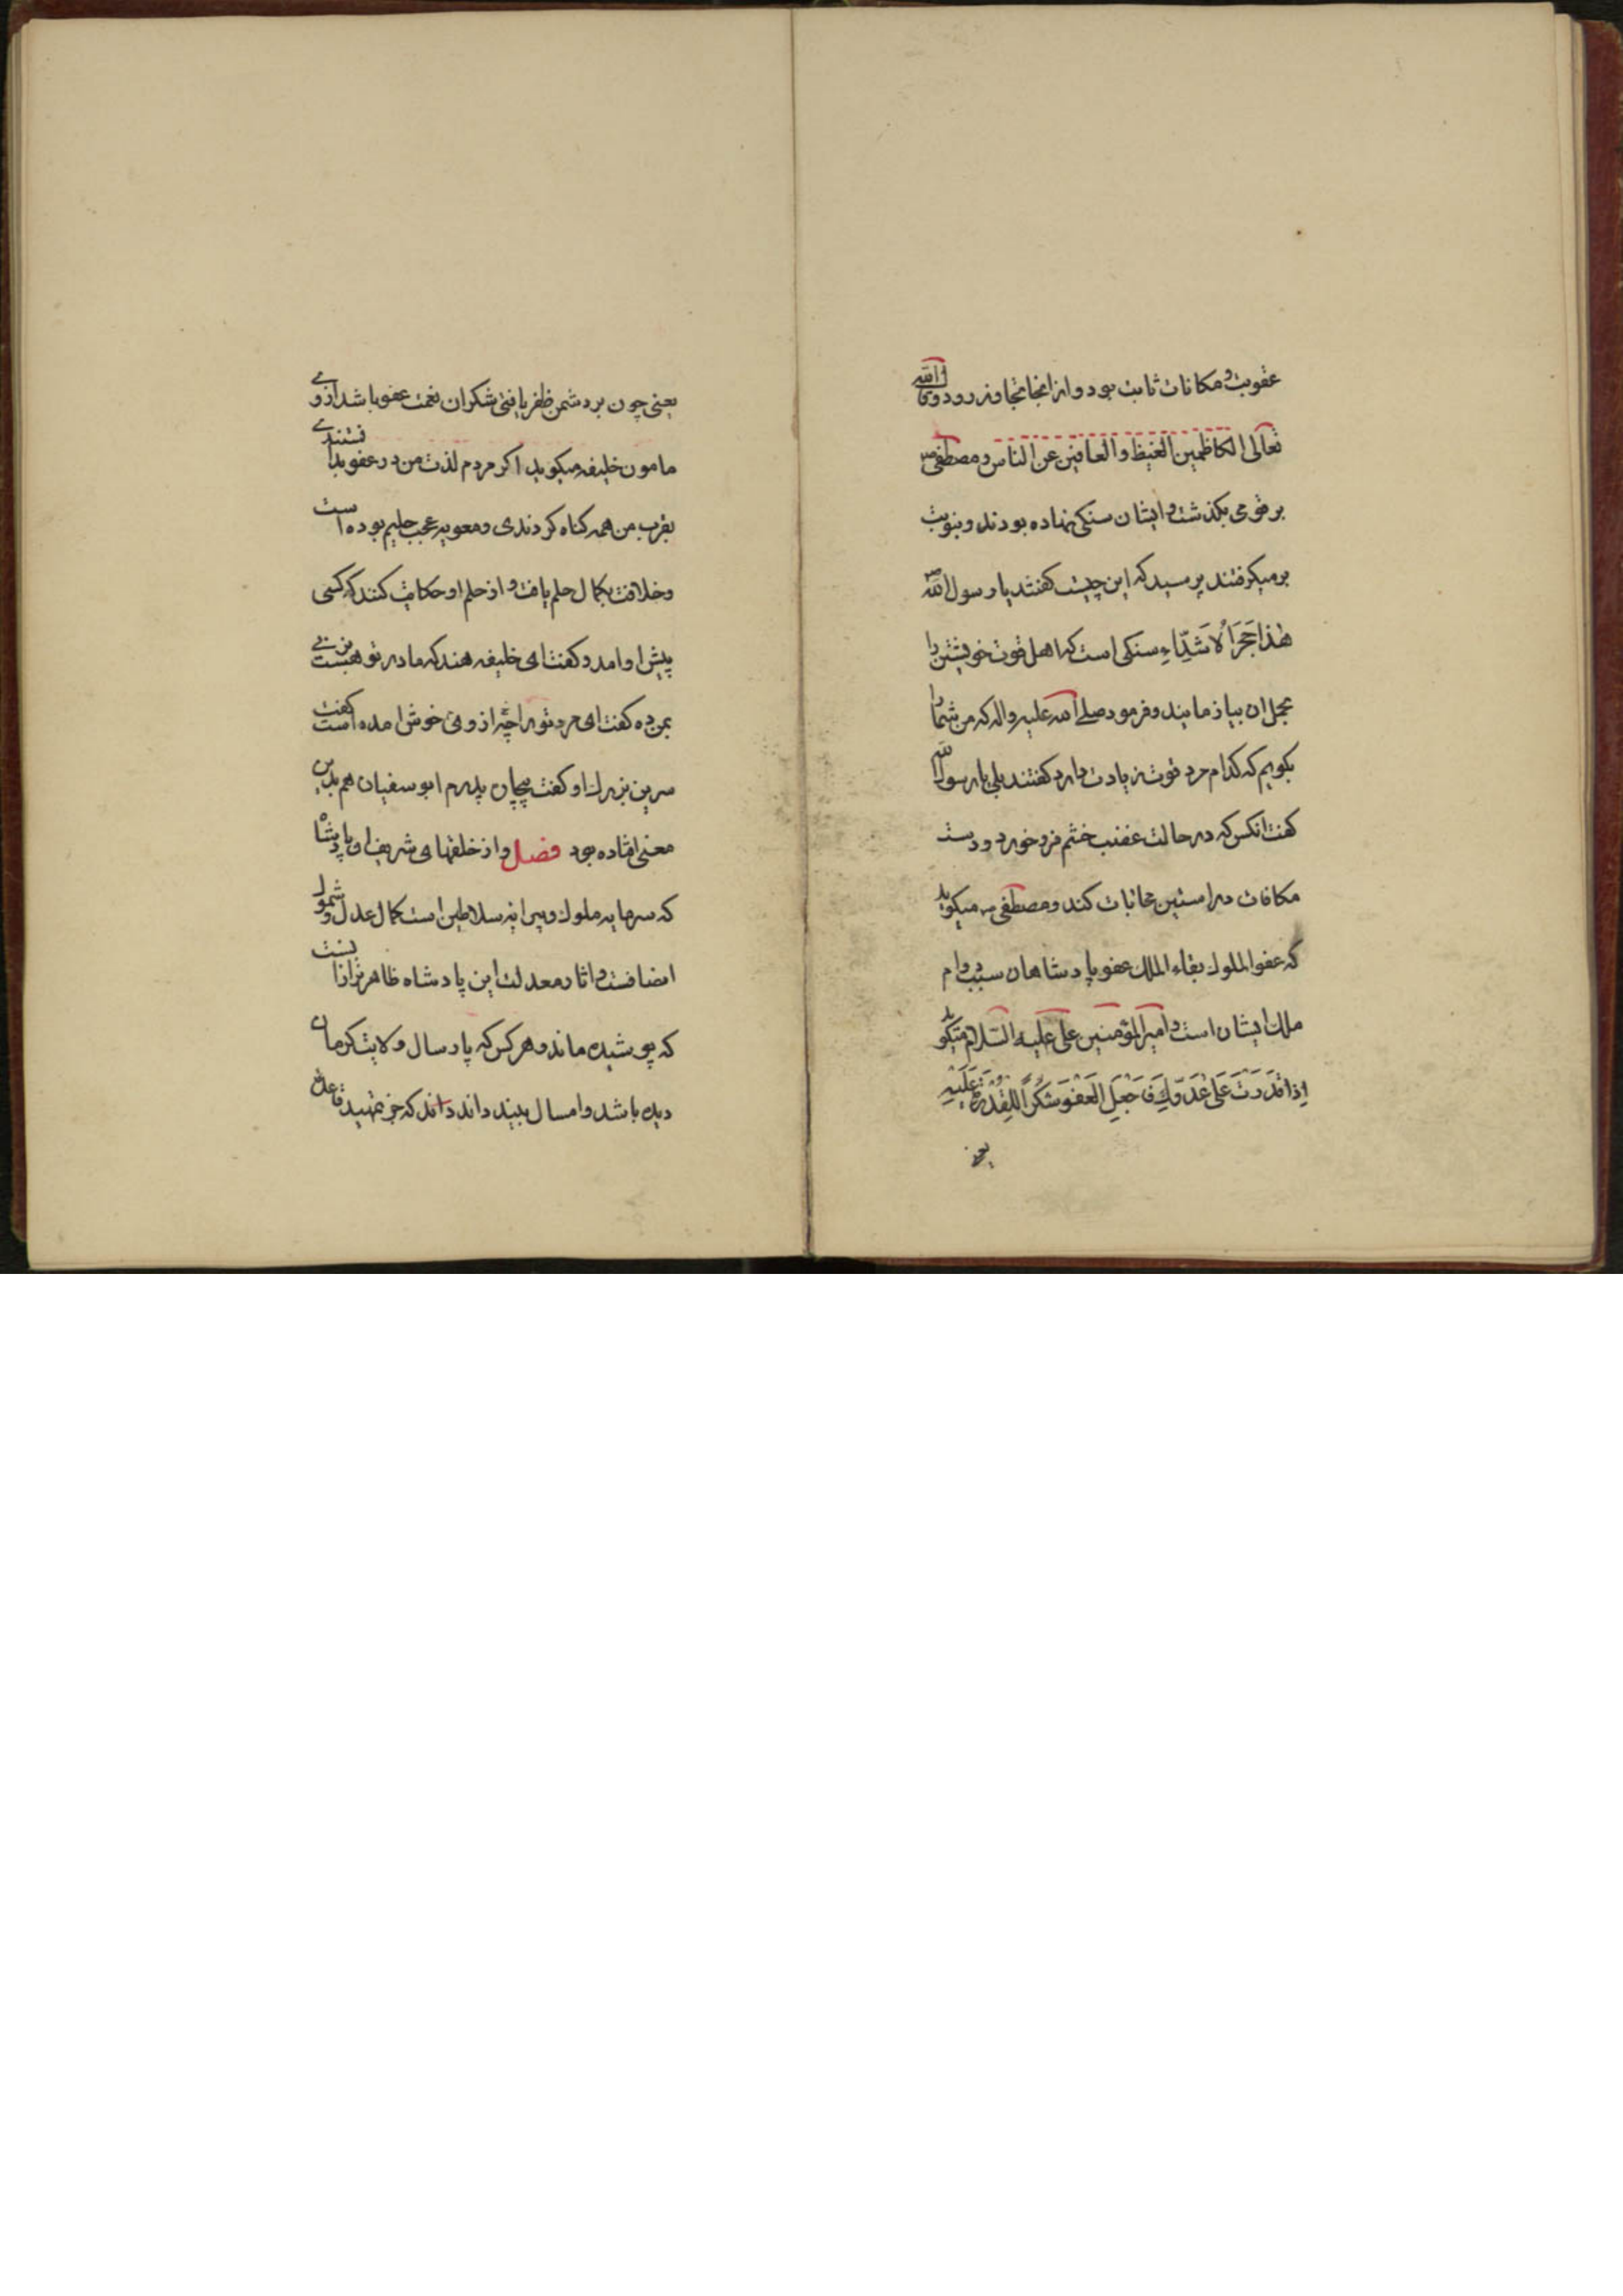 عقوبت و مکافات ثابت بود و از انجا تجاوز رود و قال الله
تعالی الکاظمین الغیظ والعافین عن الناس و مصطفی ص
بر قومی بکذشت و ایشان سنکی نهاده بودند و بنوبت
برمیکرفتند پرسید که این چیست کفتند یا رسول الله
هٰذا حَجَرَ الْاَشَدِّاءِ سنکی است که اهل قوت خویشتن را
بحل ان بیازمایند و فرمود صلی الله علیه واله که من شما را
بکویم که کدام مرد قوت زیادت دارد کفتند بلی یا رسول الله
کفت انکس که در حالت غضب خشم فرو خورد و دست
مکافات در استین محابات کند و مصطفی ص میکوید
که عفو الملوک بقاء الملک عفو پادشاهان سبب دوام
ملک ایشان است و امیر المؤمنین علی علیه السّلام میکوید
اِذا قَدَرْتَ عَلی عَدُوِّكَ فَاجْعَلِ الْعَفْوَ شُکْرًا لِلْقُدْرَةِ عَلَیْهِ
یعنی
یعنی چون بر دشمن ظفر یافتی شکران نعمت عفو باشد از وی
مامون خلیفه میکوید اکر مردم لذت من در عفو بدانستندی
بقرب من همه کناه کردندی و معویه عجب حلیم بوده است
و خلافت بکمال حلم یافت و از حلم او حکایت کنند که کسی
پیش او امد و کفت ای خلیفه هند که مادر تو هست بزنی
بمن ده کفت ای مرد تو را چه از وی خوش امده است کفت
سرین بزرک او کفت بچپان پدرم ابو سفیان هم بدین
معنی افتاده بود فصل و از خلقهای شریف این پادشاه
که سرمایه ملوک و پیرایه سلاطین است کمال عدل و شمول
انصافست و اثار معدلت این پادشاه ظاهرتر از انست
که پوشیده ماند و هر کس که پارسال ولایت کرمان
دیده باشد و امسال بیند داند که جز تمهید قاعده